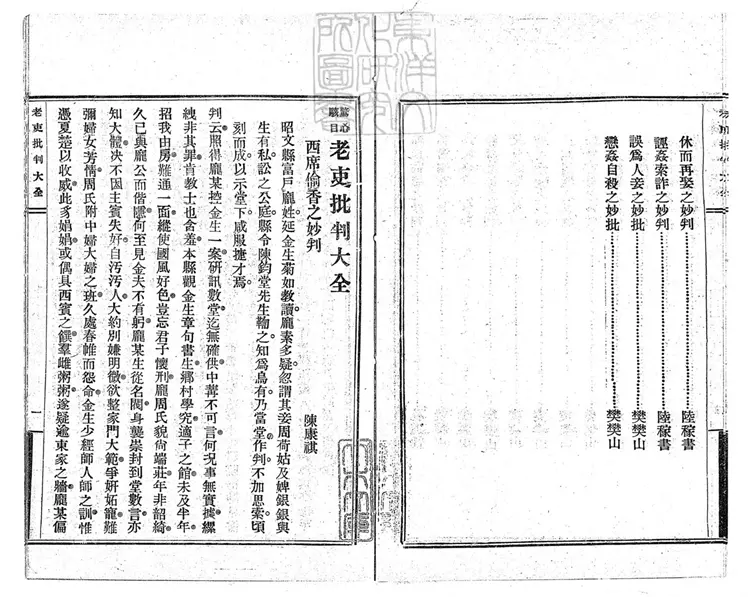 休而再娶之妙判……………陸稼書
誤爲人妾之妙批……………樊樊山
誣姦索詐之妙判……………陸稼書
戀姦自殺之妙批……………樊樊山
驚心駭目 老吏批判大全
西席偷香之妙判
陳康祺
昭文縣富戶龐姓延金生菊如教讀龐素多疑忽謂其妾周荷姑及婢銀銀與
生有私訟之公庭縣令陳鈞堂先生鞫之知爲烏有乃當堂作判不加思索頃
刻而成以示堂下咸服捷才焉
判云照得龐某控金生一案研訊數堂迄無確供中冓不可言何况事無實據縲
絏非其罪肯教士也含羞本縣觀金生章句書生鄉村學究適子之館未及半年
招我由房難通一面縱使國風好色豈忘君子懷刑龐周氏貌尙端莊年非韶綺
久已與龐公而偕隱何至見金夫不有躬龐某生從名閥身襲崇封到堂數言亦
知大體决不因主賓失好自汚汚人大約別嫌明微欲整家門大範爭妍妬寵難
彌婦女芳情周氏附中婦大婦之班久處春帷而怨命金生少經師人師之訓惟
憑夏楚以收威此豸娟娟或偶具西賓之饌羣雌粥粥遂疑逾東家之牆龐某偏
老吏批判大全
一